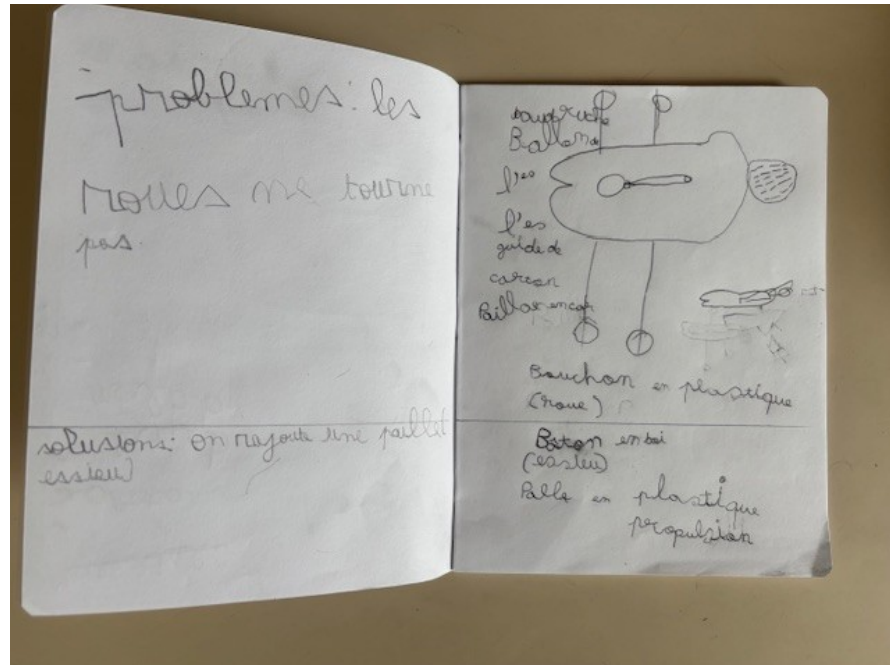 - problemes: les
roues ne tourne
pas.
solusions: on rajoute une paillet
essieu)
Ballon
l'es
l'es
guide de
carton
Bouchon en plastique
(roue)
Baton en boi
(essieu)
Palle en plastique
propulsion